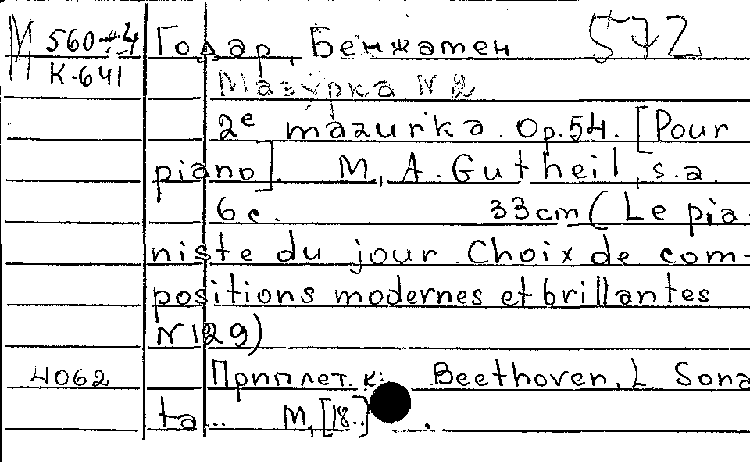 М 560-44 Годар, Бенжамен 572
К-641
Мазурка №2
2e mazurka. Op.54. [Pour
piano]. M, A. Gutheil, s.a.
6 с. 33cm (Le pia-
niste du jour Choix de com-
positions modernes et brillantes
N129)
4062 Приплет. к: Beethoven, L Sona
ta... M, [18..]